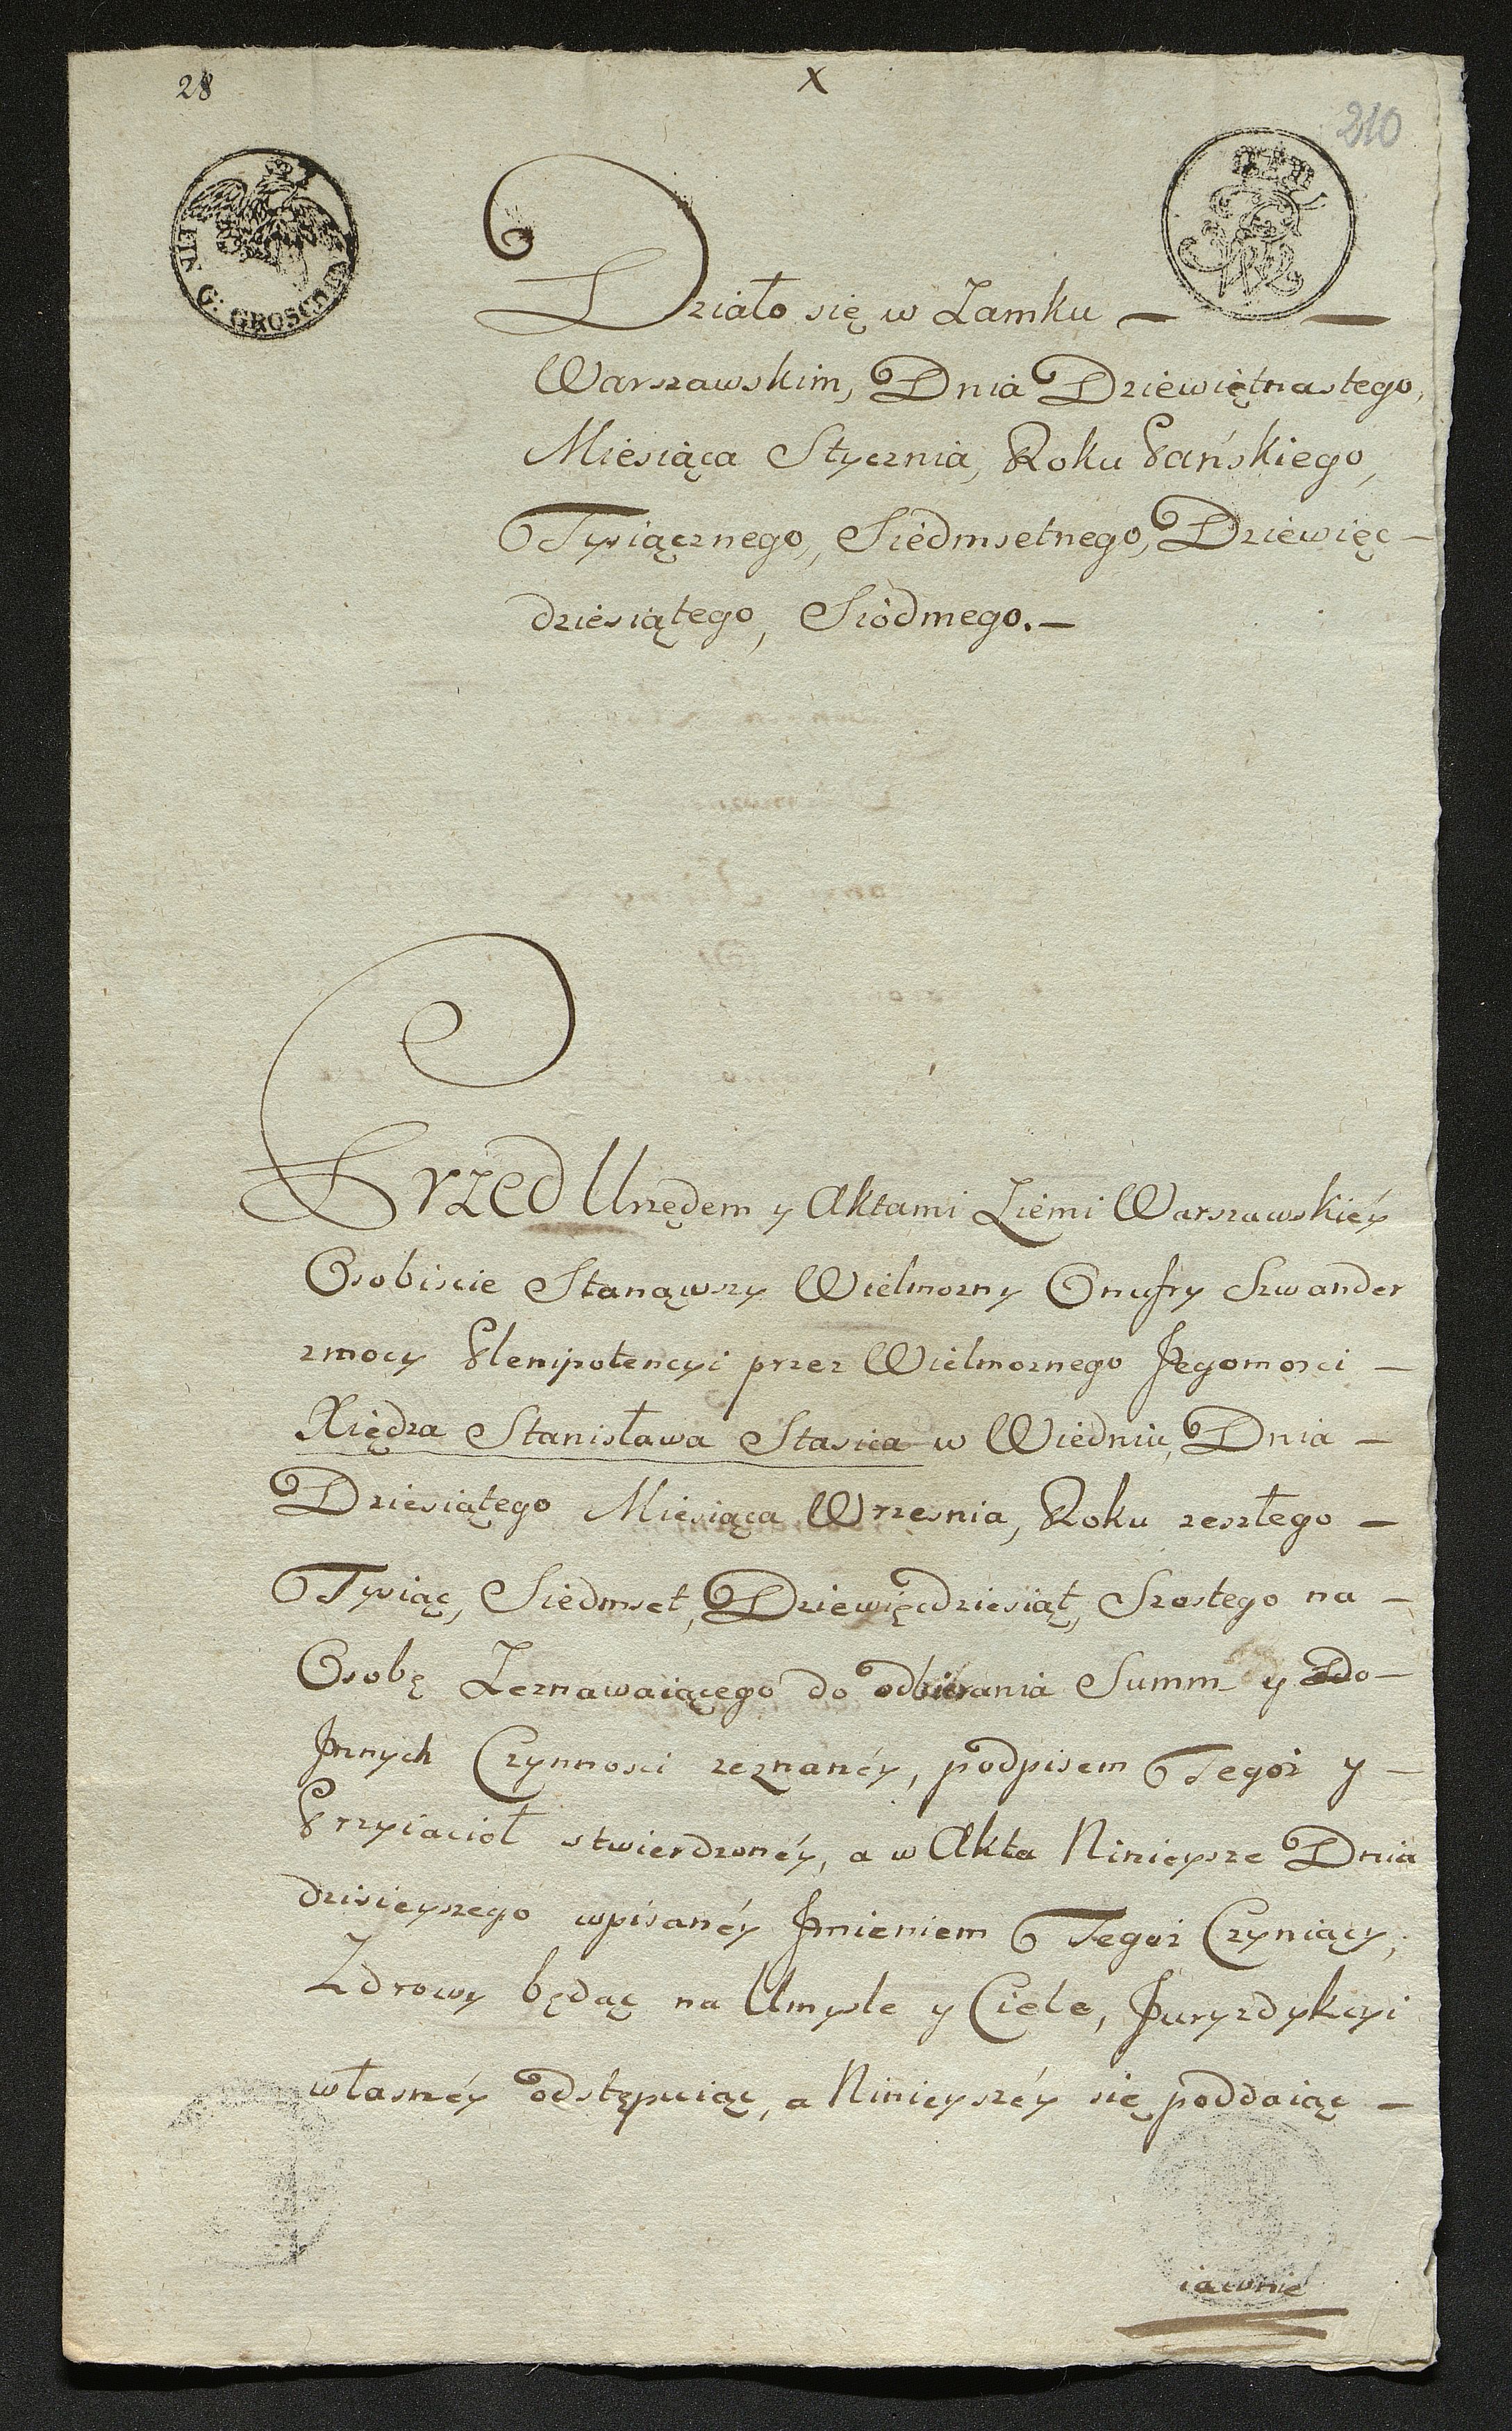 28
x
210
G: GROSCHEN
Działo się w Zamku —
Warszawskim, Dnia Dziewiętnastego,
Miesiąca Stycznia, Roku Pańskiego,
Tysiącznego, Siedmsetnego, Dziewięć-
dziesiątego, Siódmego.—
Przed Urzędem y Aktami Ziemi Warszawskiéy
Osobiscie Stanąwszy Wielmozny Onufry Szwander
zmocy Plenipotencyi przez Wielmoznego Jegomosci —
Xiędza Stanisława Stasica w Wiedniu, Dnia —
Dziesiątego Miesiąca Wrzesnia, Roku zeszłego —
Tysiąc, Siedmset, Dziewięcdziesiąt, Szostego na —
Osobę Zeznawaiącego do odbierania Summ y do —
Jnnych Czynnosci zeznanéy, podpisem Tegoż y —
Przyiacioł stwierdzonéy, a w Akta Ninieysze Dnia
dzisieyszego wpisanéy Jmieniem Tegoz Czyniący,
Zdrowy będąc na Umysle y Ciele, Juryzdykcyi
własnéy odstępuiąc, a Ninieyszéy się poddaiąc —
iawnie